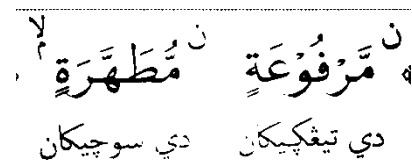 ن مَّرْفُوْعَةٍ ن مُّطَهَّرَةٍ ۙم
دي تيڠكيكان دي سوچيكان